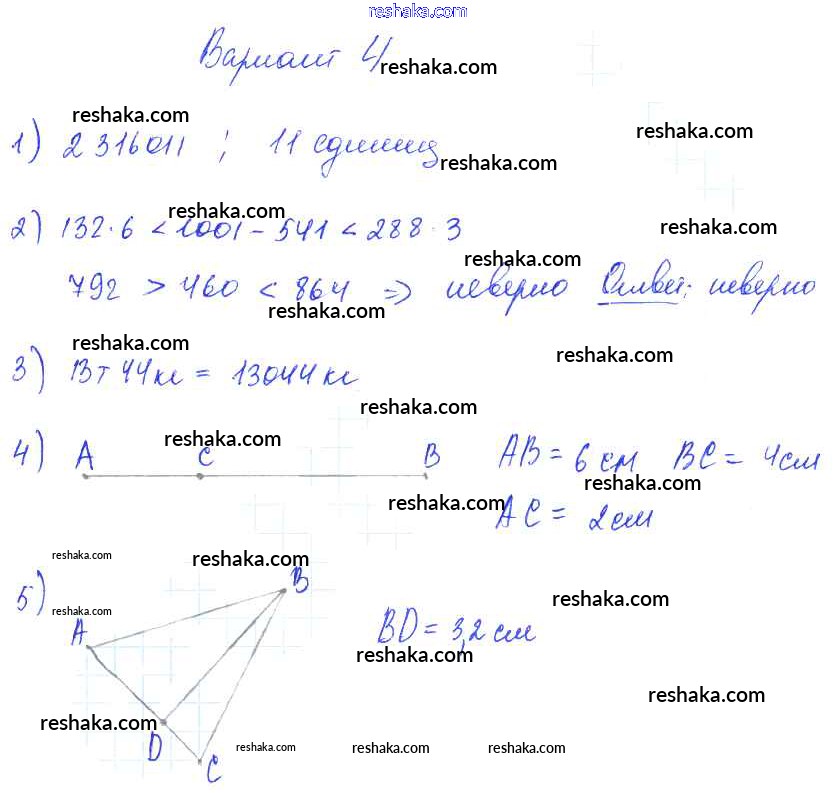 reshaka.com
Вариант 4
reshaka.com
reshaka.com
reshaka.com
1) 2 316 011 ; 11 единиц
reshaka.com
reshaka.com
reshaka.com
2) 132·6 < 1001 - 541 < 288·3
reshaka.com
792 > 460 < 864 => неверно Ответ: неверно
reshaka.com
reshaka.com
reshaka.com
3) 13т 44кг = 13044кг
reshaka.com
reshaka.com
4) A C B AB = 6 см BC = 4см
reshaka.com
reshaka.com
AC = 2см
reshaka.com
reshaka.com
5) B
reshaka.com
reshaka.com
A BD = 3,2 см
reshaka.com
reshaka.com
reshaka.com
D
reshaka.com reshaka.com reshaka.com
C